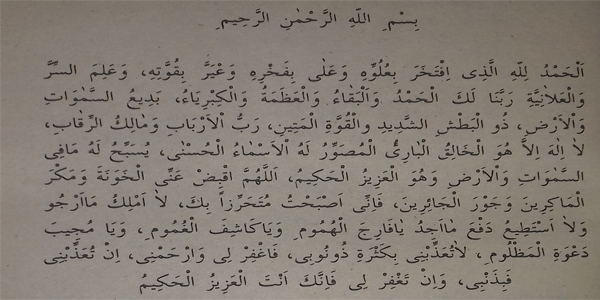 بِسْمِ اللهِ الرَّحْمٰنِ الرَّحِيمِ
اَلْحَمْدُ لِلّٰهِ الَّذِى اِفْتَخَرَ بِعُلُوِّهِ وَعَلٰى بِفَخْرِهِ وَعَيَّرَ بِقُوَّتِهِ، وَعَلِمَ السِّرَّ
وَالْعَلاٰنِيَّةِ رَبَّنَا لَكَ الْحَمْدُ وَالْبَقٰاءُ وَالْعَظَمَةُ وَالْكِبْرِيَاءُ، بَدِيعُ السَّمٰوَاتِ
وَاْلاَرْضِ، ذُو الْبَطْشِ الشَّدِيدِ والْقُوَّةِ الْمَتِينِ، رَبُّ اْلاَرْبَابِ وَمَالِكُ الرِّقَابِ،
لاٰ اِلٰهَ اِلاَّ هُوَ الْخَالِقُ الْبَارِئُ الْمُصَوِّرُ لَهُ اْلاَسْمَاءُ الْحُسْنٰى، يُسَبِّحُ لَهُ مَافِى
السَّمٰوَاتِ وَاْلاَرْضِ وَهُوَ الْعَزِيزُ الْحَكِيمُ، اَللّٰهُمَّ اقْبِضْ عَنِّى الْخَوَنَةَ وَمَكْرَ
الْمَاكِرِينَ وَجَوْرَ الْجَائِرِينَ، فَاِنِّى اَصْبَحْتُ مُتَحَرِّزاً بِكَ، لاٰ اَمْلِكُ مٰااَرْجُو
وَلاٰ اَسْتَطِيعُ دَفْعَ مٰااَجِدُ يٰافَارِجَ الْهُمُومِ وَيَاكَاشِفَ الْغُمُومِ، وَيَا مُجِيبَ
دَعْوَةِ الْمَظْلُومِ، لاٰتُعَذِّبْنِى بِكَثْرَةِ ذُونُوبِى، فَاغْفِرْ لِى وَارْحَمْنِى، اِنْ تُعَذِّبْنِى
فَبِذَنْبِى، وَاِنْ تَغْفِرْ لِى فَاِنَّكَ اَنْتَ الْعَزِيزُ الْحَكِيمُ